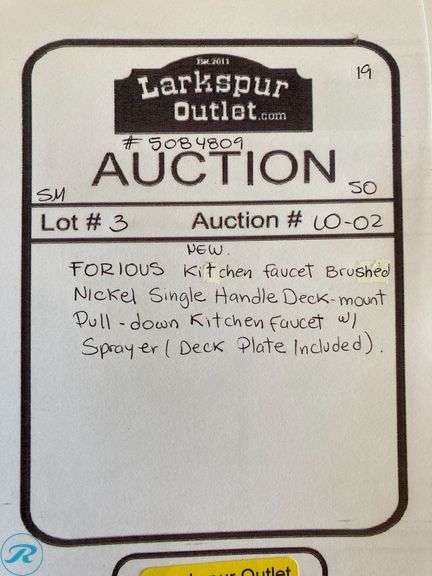 Est. 2011
19
Larkspur
Outlet.com
# 5084809
AUCTION
SM
50
Lot # 3 Auction # LO-02
NEW.
FORIOUS Kitchen faucet Brushed
Nickel Single Handle Deck-mount
Pull-down Kitchen Faucet w/
Sprayer (Deck Plate Included).
R
Larkspur Outlet